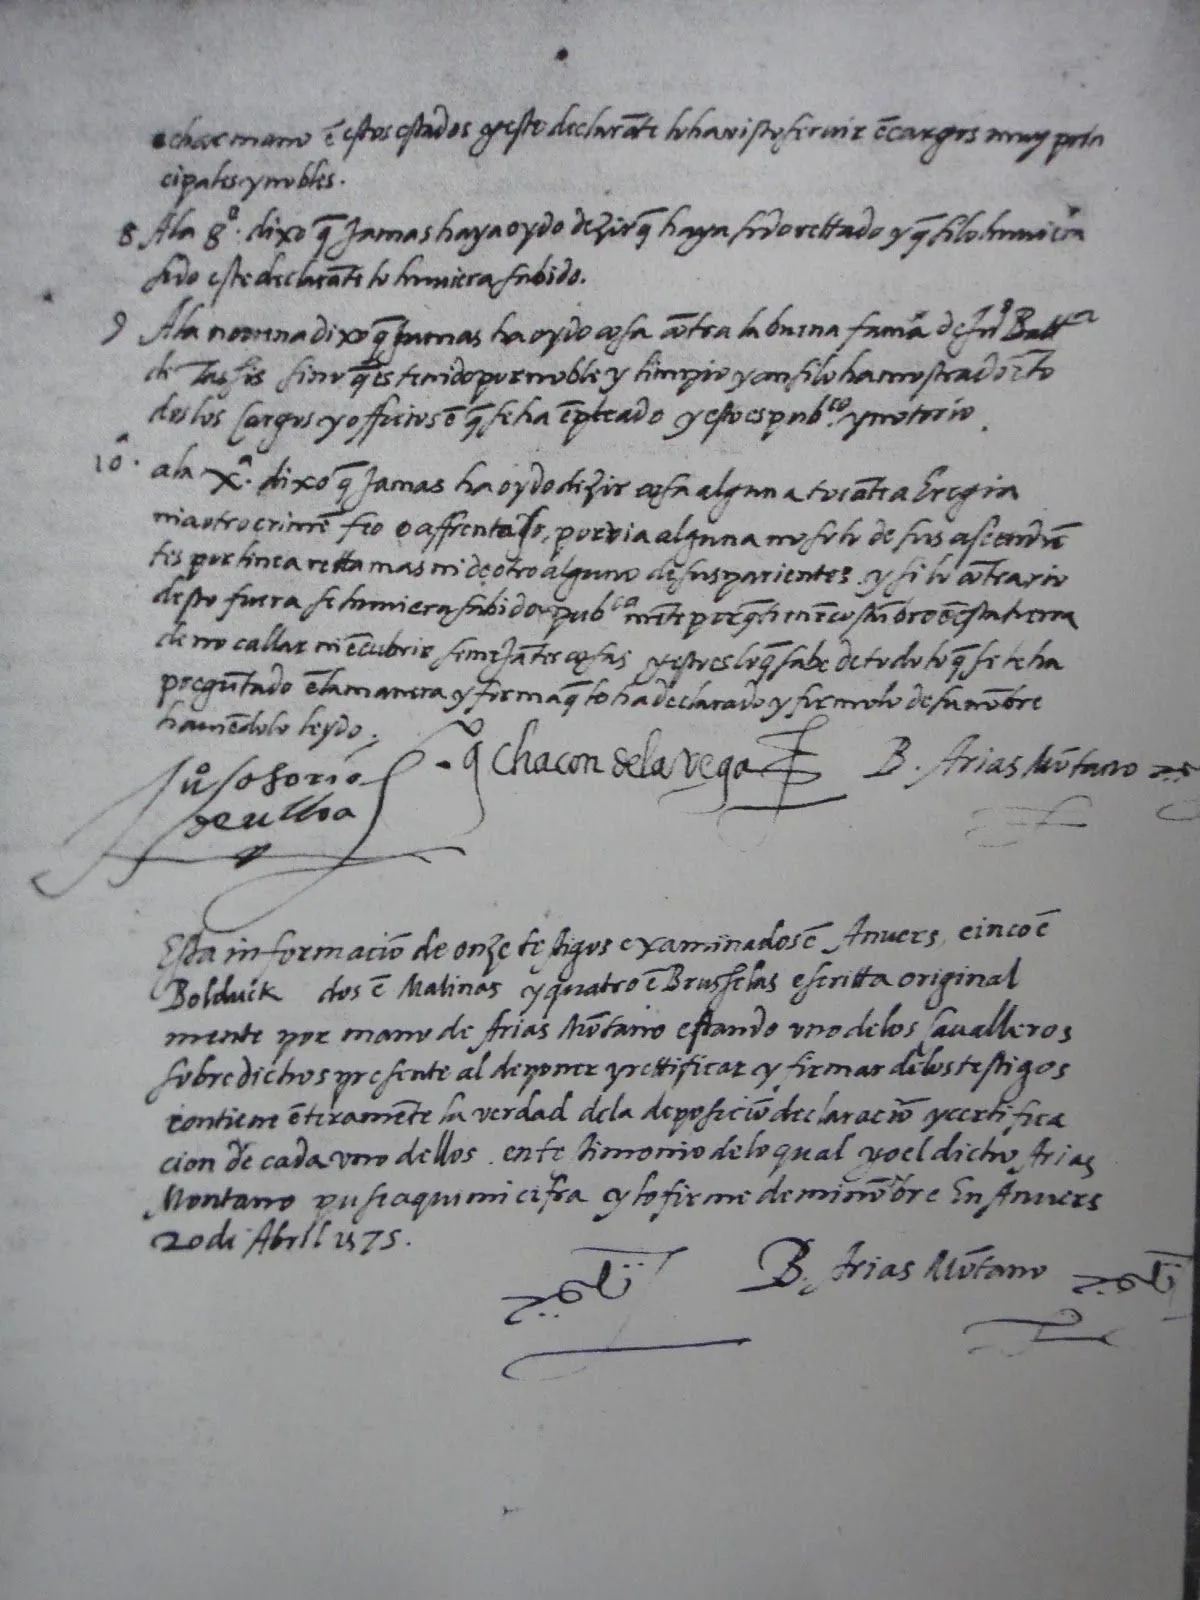 echar mano ẽ estos estados y este declarãte lo ha visto servir ẽ cargos muy prin
cipales y nobles.
8 A la 8ª. dixo q̃ Jamas haya oydo dezir q̃ haya sido rettado y q̃ si lo huviera
sido este declarãte lo huviera sabido.
9 A la novena dixo q̃ Jamas ha oydo cosa cõtra la buena fama de Juº Battª
de Tassis sino q̃ es tenido por noble y limpio y an si lo ha mostrado ẽ to
dos los cargos y officios ẽ q̃ se ha ẽpleado y esto es pubᶜᵒ y notorio.
10. a la Xª. dixo q̃ Jamas ha oydo dezir cosa alguna tocãte a Eregia
ni a otro crimẽ feo o affrentoso, por via alguna no solo de sus ascendiẽ
tes por linea retta mas ni de otro alguno de sus parientes y si lo cõtrario
desto fuera se huviera sabido pubᶜᵃmẽte porq̃ tienẽ costũbre ẽ esta tierra
de no callar ni ẽcubrir semejãtes cosas y esto es lo q̃ sabe de todo lo q̃ se le ha
pregũtado ẽ la manera y firma q̃ lo ha declarado y firmolo de su nõbre
haviẽdolo leydo.
Juº Osorio
de ulloa
Chacon de la vega
B. Arias Mõtano
Esta informaciõ de onze testigos examinados ẽ Anvers, cinco ẽ
Bolduck dos ẽ Malinas y quatro ẽ Brusselas escritta original
mente por mano de Arias Mõtano estando uno de los cavalleros
sobredichos presente al deponer y rettificar y firmar de los testigos
contiene ẽteramẽte la verdad de la deposiciõ declaraciõ y certifica
cion de cada uno dellos. en testimonio de lo qual yo el dicho Arias
Montano puse aqui mi cifra y lo firme de mi nõbre En Anvers
20 de Abril 1575.
B. Arias Mõtano